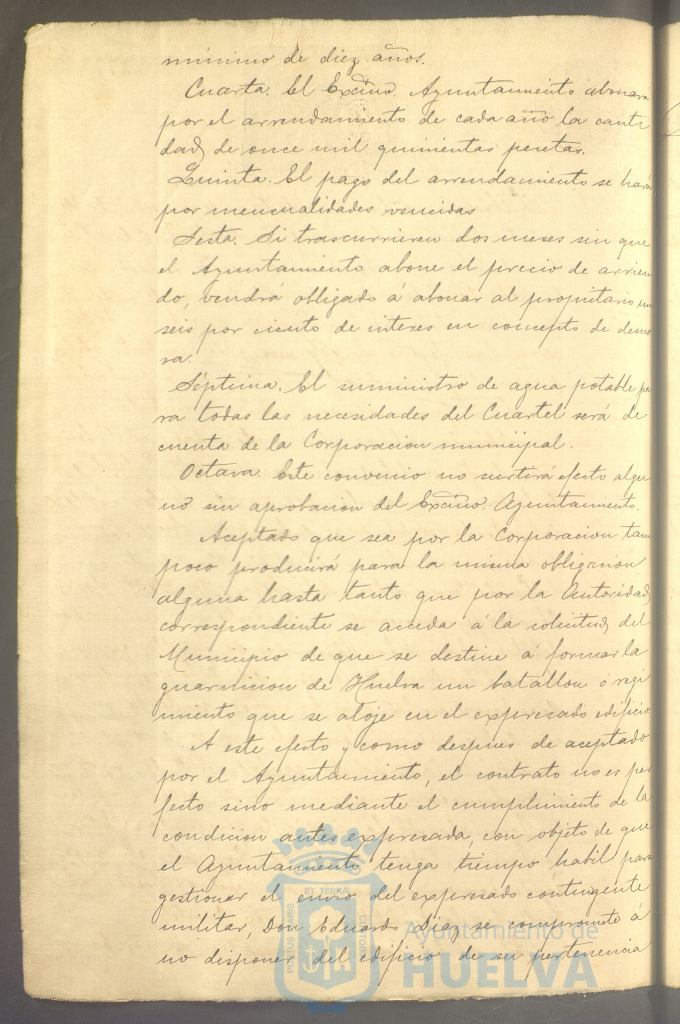 mínimo de diez años.
Cuarta. El Excmo. Ayuntamiento abonara
por el arrendamiento de cada año la canti
dad de once mil quinientas pesetas.
Quinta. El pago del arrendamiento se hará
por mensualidades vencidas
Sesta. Si trascurrieren dos meses sin que
el Ayuntamiento abone el precio de arrien
do, vendrá obligado á abonar al propietario un
seis por ciento de interes en concepto de demo
ra.
Séptima. El suministro de agua potable pa
ra todas las necesidades del Cuartel será de
cuenta de la Corporacion municipal.
Octava. Este convenio no surtirá efecto algu
no sin aprobacion del Excmo. Ayuntamiento.
Aceptado que sea por la Corporacion tam
poco producirá para la misma obligacion
alguna hasta tanto que por la Autoridad
correspondiente se acceda á la solicitud del
Municipio de que se destine á formar la
guarnicion de Huelva un batallon ó regi
miento que se aloje en el expresado edificio
A este efecto y como despues de aceptado
por el Ayuntamiento, el contrato no es per
fecto sino mediante el cumplimiento de la
condicion antes expresada, con objeto de que
el Ayuntamiento tenga tiempo habil para
gestionar el envio del expresado contingente
militar, Don Eduardo Diaz se compromete á
no disponer del edificio de su pertenencia
PORTUS MARIS ET TERRE CUSTODIA
Ayuntamiento de
HUELVA